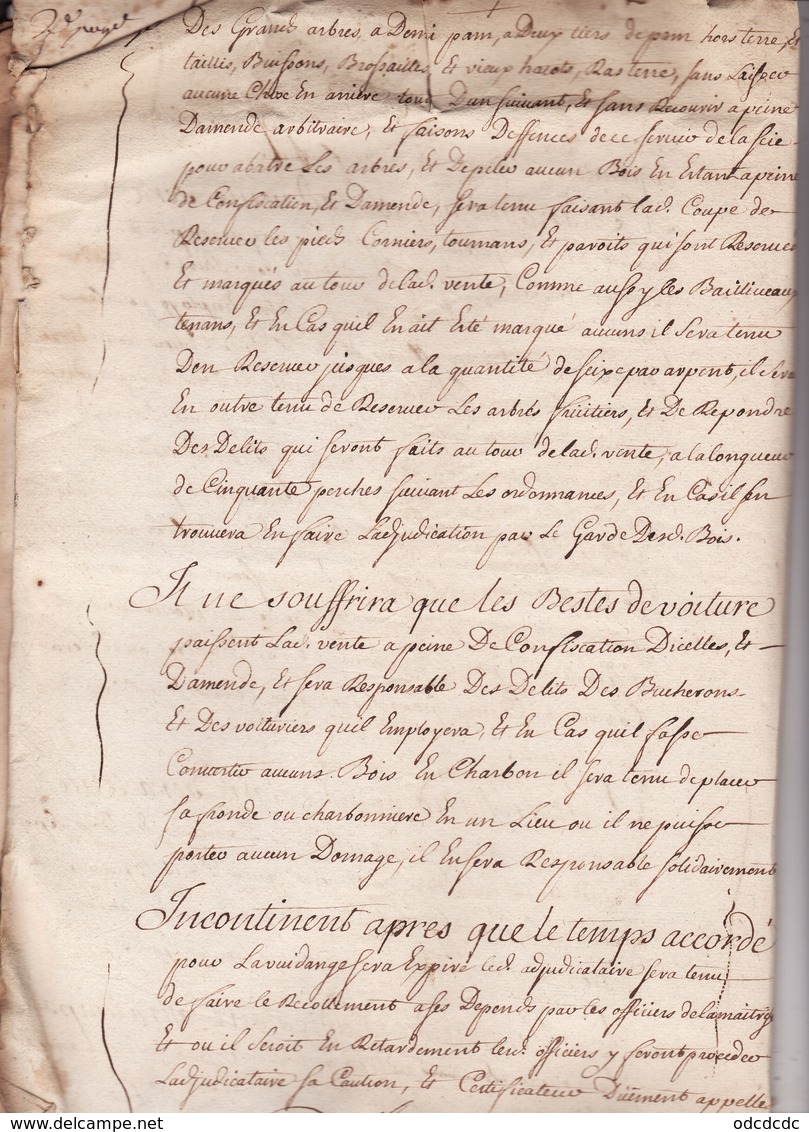 2e page
Des Grands arbres, a Demi pam, a Deux tiers de pam hors terre, Et
taillis, Buissons, Brossailles, Et vieux harots, Ras terre, sans Laisser
aucune Chose En arriere tout Dun suivant, Et sans Recourir a peine
Damende arbitraire, Et faisons Deffences de ce servir de la scie
pour abatre Les arbres, Et Depiler aucun Bois En Estant a peine
de Confiscation, Et Damende, sera tenu faisant lad. Coupe de
Reserver les pieds Corniers, tournans, Et parroits qui sont Reserves
Et marqués au tour de lad. vente, Comme aussy les Bailliveaux
tenans, Et En Cas quil En ait Esté marqué aucuns il sera tenu
Den Reserver jusques a la quantité de seize par arpent, il sera
En outre tenu de Reserver Les arbres früitiers, Et De Repondre
Des Delits qui seront faits au tour de lad. vente, a la longueur
de Cinquante perches suivant Les ordonnances, Et En Cas il sen
trouvera En faire Ladjudication par Le Garde Desd. Bois.
Il ne souffrira que les Bestes de voiture
paissent Lad. vente a peine De Confiscation Dicelles, Et
Damende, Et sera Responsable Des Delits Des Bucherons
Et Des voituriers quil Employera, Et En Cas quil fasse
Convertir aucuns Bois En Charbon il sera tenu de placer
sa fronde ou charbonniere En un Lieu ou il ne puisse
porter aucun Domage, il En sera Responsable solidairement
Incontinent apres que le temps accordé
pour La vuidange sera Expiré led. adjudicataire sera tenu
de faire le Recollement a ses Depends par les officiers de la maitryse
Et ou il seroit En Retardement lesd. officiers y seront proceder
Ladjudicataire sa Caution, Et Certificateur Düement appellé
odcdcdc